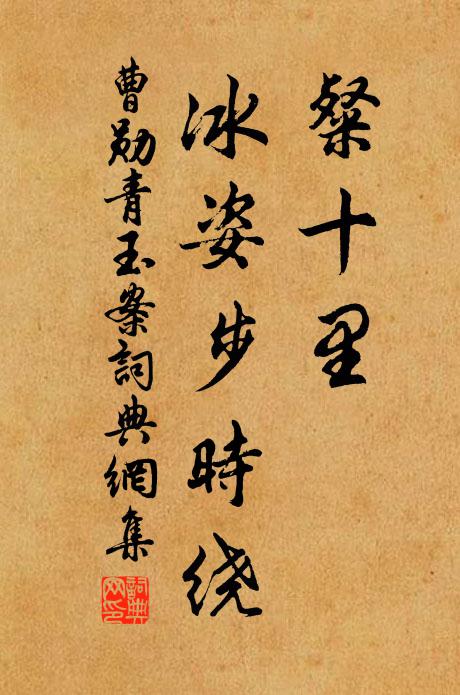 粲十里
冰姿步時绕
曹勋青玉案詞典網集
詞典网印